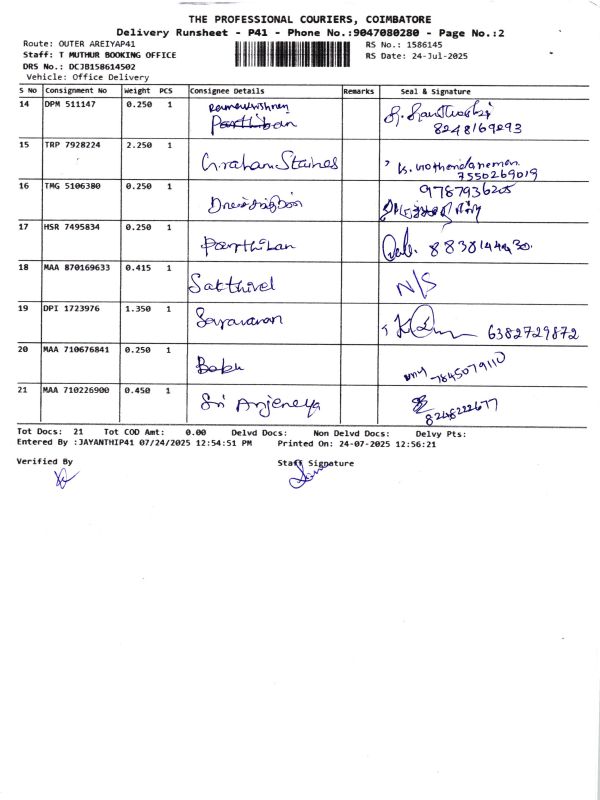 THE PROFESSIONAL COURIERS, COIMBATORE
Delivery Runsheet - P41 - Phone No.:9047080280 - Page No.:2
Route: OUTER AREIYAP41 RS No.: 1586145
Staff: T MUTHUR BOOKING OFFICE RS Date: 24-Jul-2025
DRS No.: DCJB158614502
Vehicle: Office Delivery
S No Consignment No Weight PCS Consignee Details Remarks Seal & Signature
14 DPM 511147 0.250 1 Parthiban
8248169293
15 TRP 7928224 2.250 1 Graham Staines
7550269019
16 TMG 5106380 0.250 1 9787936205
17 HSR 7495834 0.250 1 Parthiban
18 MAA 870169633 0.415 1 Satthivel N/S
19 DPI 1723976 1.350 1 Saravanan 6382729872
20 MAA 710676841 0.250 1 Babu 7845079110
21 MAA 710226900 0.450 1 Sri Anjeneya 8248222677
Tot Docs: 21 Tot COD Amt: 0.00 Delvd Docs: Non Delvd Docs: Delvy Pts:
Entered By :JAYANTHIP41 07/24/2025 12:54:51 PM Printed On: 24-07-2025 12:56:21
Verified By Staff Signature